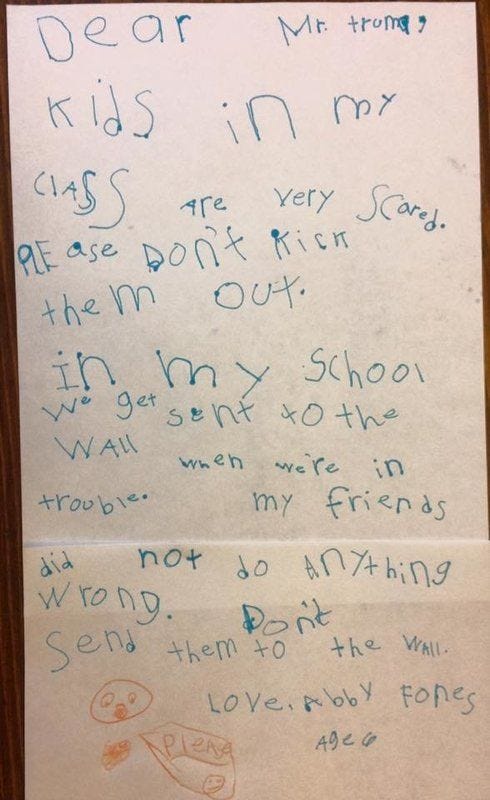 Dear Mr. trump,
Kids in my
ClASS Are very Scared.
PLEase DON't Kick
theM OUt.
In my School
We get sent to the
WAll when we're in
trouble. my friends
did not do ANything
Wrong. Don't
Send them to the WAll.
LOVe, Abby Fones
Age 6
PleAse